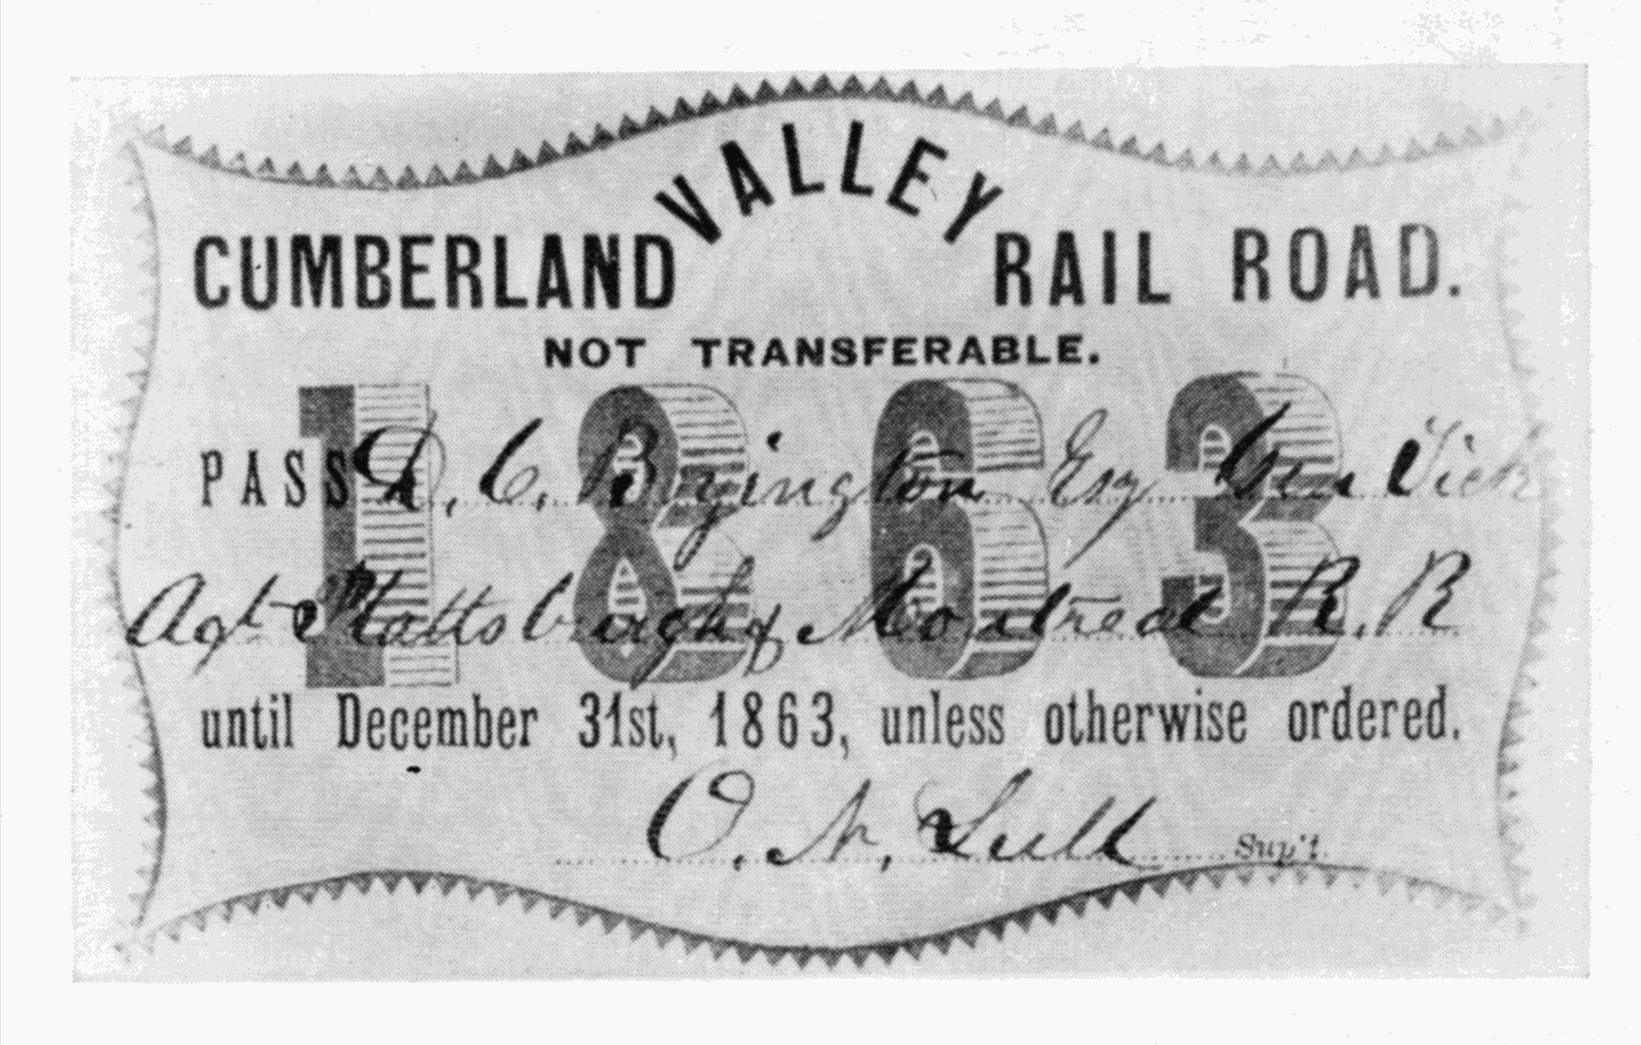 CUMBERLAND VALLEY RAIL ROAD.
NOT TRANSFERABLE.
1863
PASS D. C. Byington Esq Gen Tick
Agt Plattsburgh & Montreal R. R
until December 31st, 1863, unless otherwise ordered.
O. N. Lull Sup't.